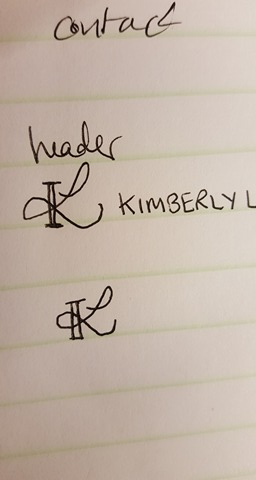 contact
header
K KIMBERLY L
K